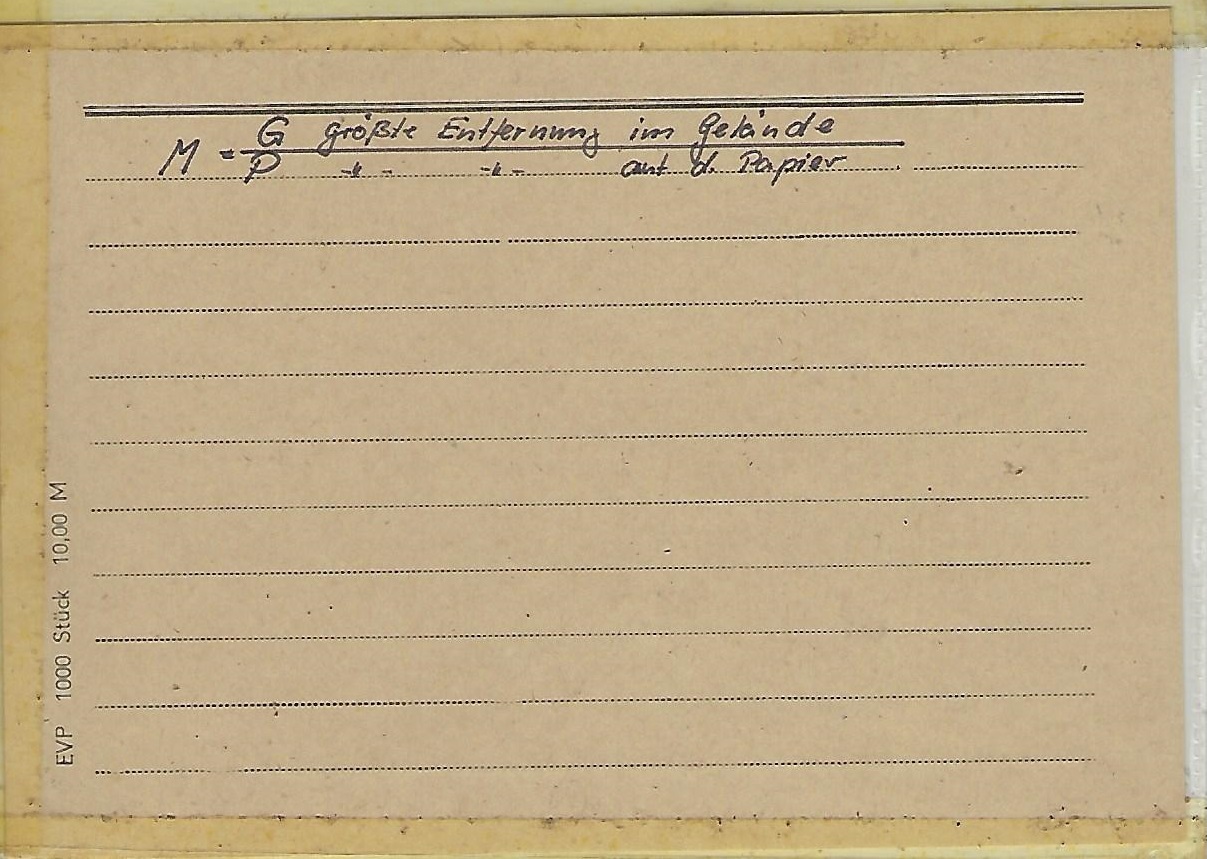 M = G größte Entfernung im Gelände
P -"- -"- auf d. Papier
EVP 1000 Stück 10,00 M